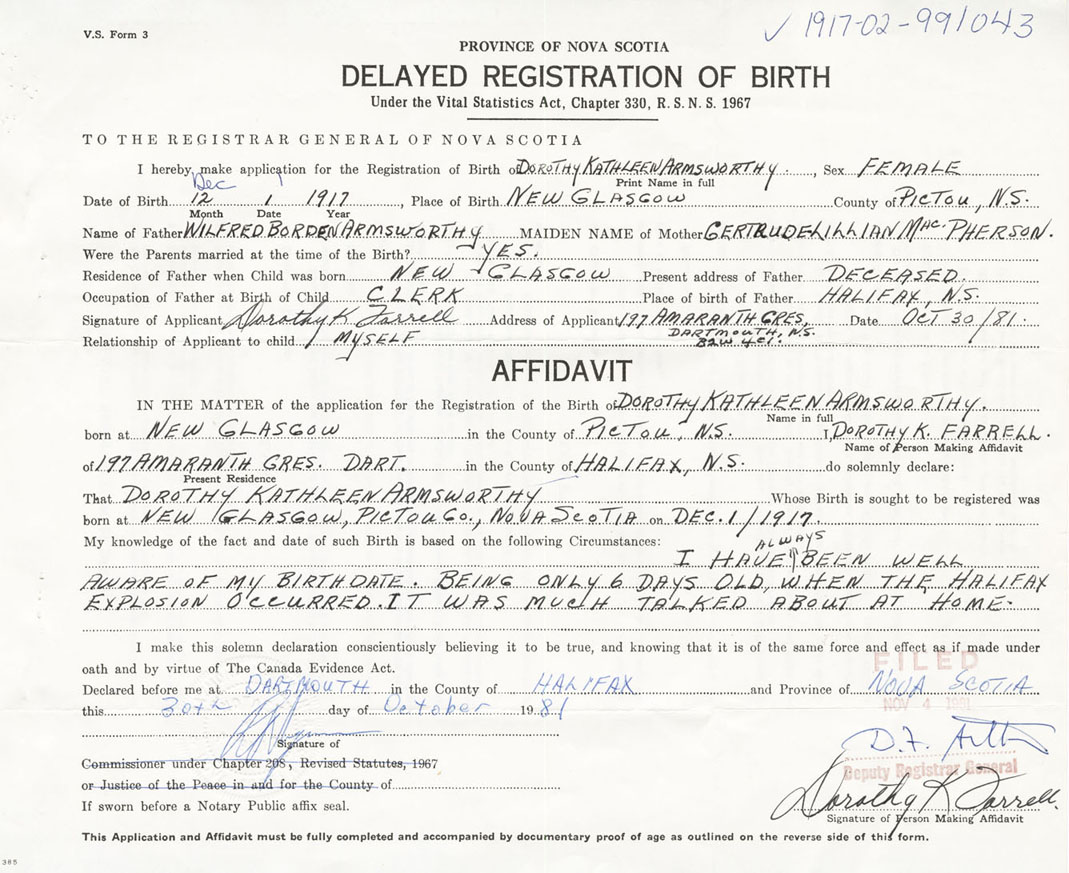 ✓ 1917-02-991043
V.S. Form 3
PROVINCE OF NOVA SCOTIA
DELAYED REGISTRATION OF BIRTH
Under the Vital Statistics Act, Chapter 330, R. S. N. S. 1967
TO THE REGISTRAR GENERAL OF NOVA SCOTIA
I hereby make application for the Registration of Birth of DOROTHY KATHLEEN ARMSWORTHY, Sex FEMALE
Print Name in full
Dec 1
Date of Birth 12 1 1917, Place of Birth NEW GLASGOW County of PICTOU, N.S.
Month Date Year
Name of Father WILFRED BORDEN ARMSWORTHY MAIDEN NAME of Mother GERTRUDE LILLIAN MacPHERSON.
Were the Parents married at the time of the Birth? YES.
Residence of Father when Child was born NEW GLASGOW Present address of Father DECEASED.
Occupation of Father at Birth of Child CLERK Place of birth of Father HALIFAX, N.S.
Signature of Applicant Dorothy K Farrell Address of Applicant 197 AMARANTH CRES, Date OCT 30/81.
DARTMOUTH, N.S.
Relationship of Applicant to child MYSELF B2W 4C1.
AFFIDAVIT
IN THE MATTER of the application for the Registration of the Birth of DOROTHY KATHLEEN ARMSWORTHY.
Name in full
born at NEW GLASGOW in the County of PICTOU, N.S. I, DOROTHY K. FARRELL.
Name of Person Making Affidavit
of 197 AMARANTH CRES. DART. in the County of HALIFAX, N.S. do solemnly declare:
Present Residence
That DOROTHY KATHLEEN ARMSWORTHY Whose Birth is sought to be registered was
born at NEW GLASGOW, PICTOU CO., NOVA SCOTIA on DEC. 1/1917.
My knowledge of the fact and date of such Birth is based on the following Circumstances:
I HAVE ALWAYS BEEN WELL
AWARE OF MY BIRTHDATE. BEING ONLY 6 DAYS OLD, WHEN THE HALIFAX
EXPLOSION OCCURRED. IT WAS MUCH TALKED ABOUT AT HOME.
I make this solemn declaration conscientiously believing it to be true, and knowing that it is of the same force and effect as if made under
oath and by virtue of The Canada Evidence Act.
FILED
Declared before me at DARTMOUTH in the County of HALIFAX and Province of NOVA SCOTIA
NOV 4 1981
this 30th day of October 1981
Signature of
Commissioner under Chapter 208, Revised Statutes, 1967
or Justice of the Peace in and for the County of
If sworn before a Notary Public affix seal.
D.F.
Deputy Registrar General
Dorothy K Farrell.
Signature of Person Making Affidavit
This Application and Affidavit must be fully completed and accompanied by documentary proof of age as outlined on the reverse side of this form.
385